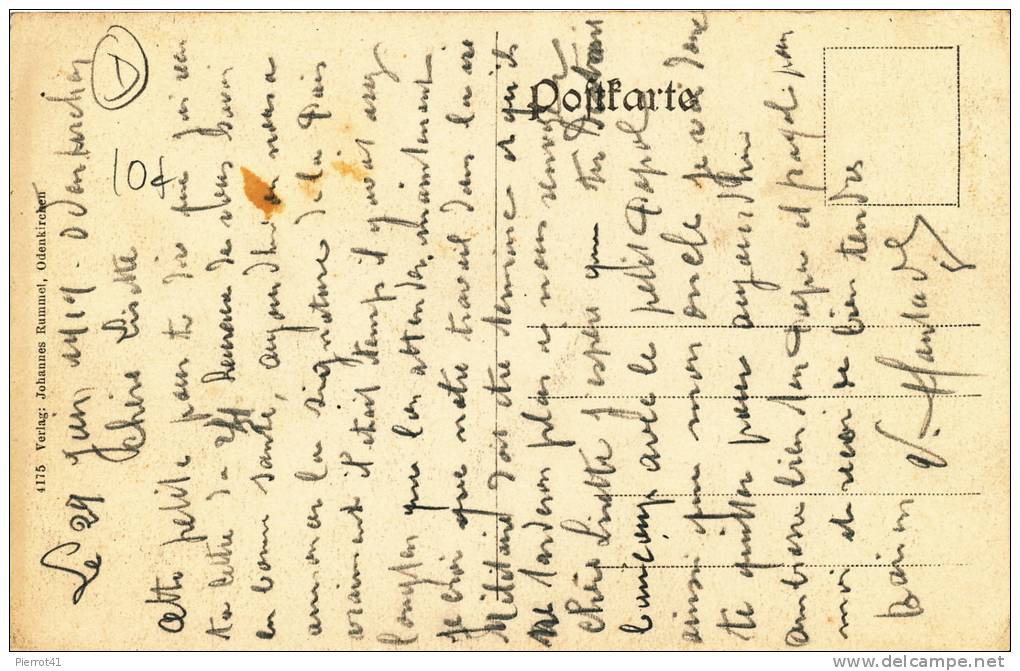 4175 Verlag: Johannes Rummel, Odenkirchen
Postkarte
10€
Le 29 Juin 1919. Odenkirchen
Chère Lisette
Cette petite pour te dire que j'ai reçu
ta lettre du 24 heureux de vous savoir
en bonne santé, aujourd'hui on nous a
annoncer la signature de la Paix
vraiment il était temps il y avait assez
longtemp que lon attendez, maintenant
je croi que notre travail dans la vie
Militaire doit être terminé et qu'ils
ne tarderon plus a nous renvoyer
Chère Lisette J'espère que tu
avec le petit Papol
ainsi que mon oncle Je vai donc
te quitter pour aujourd'hui
embrasse bien ton Papa et papol pour
moi et recoi de bien tendres
baisers
Pierrot41
delcampe.net